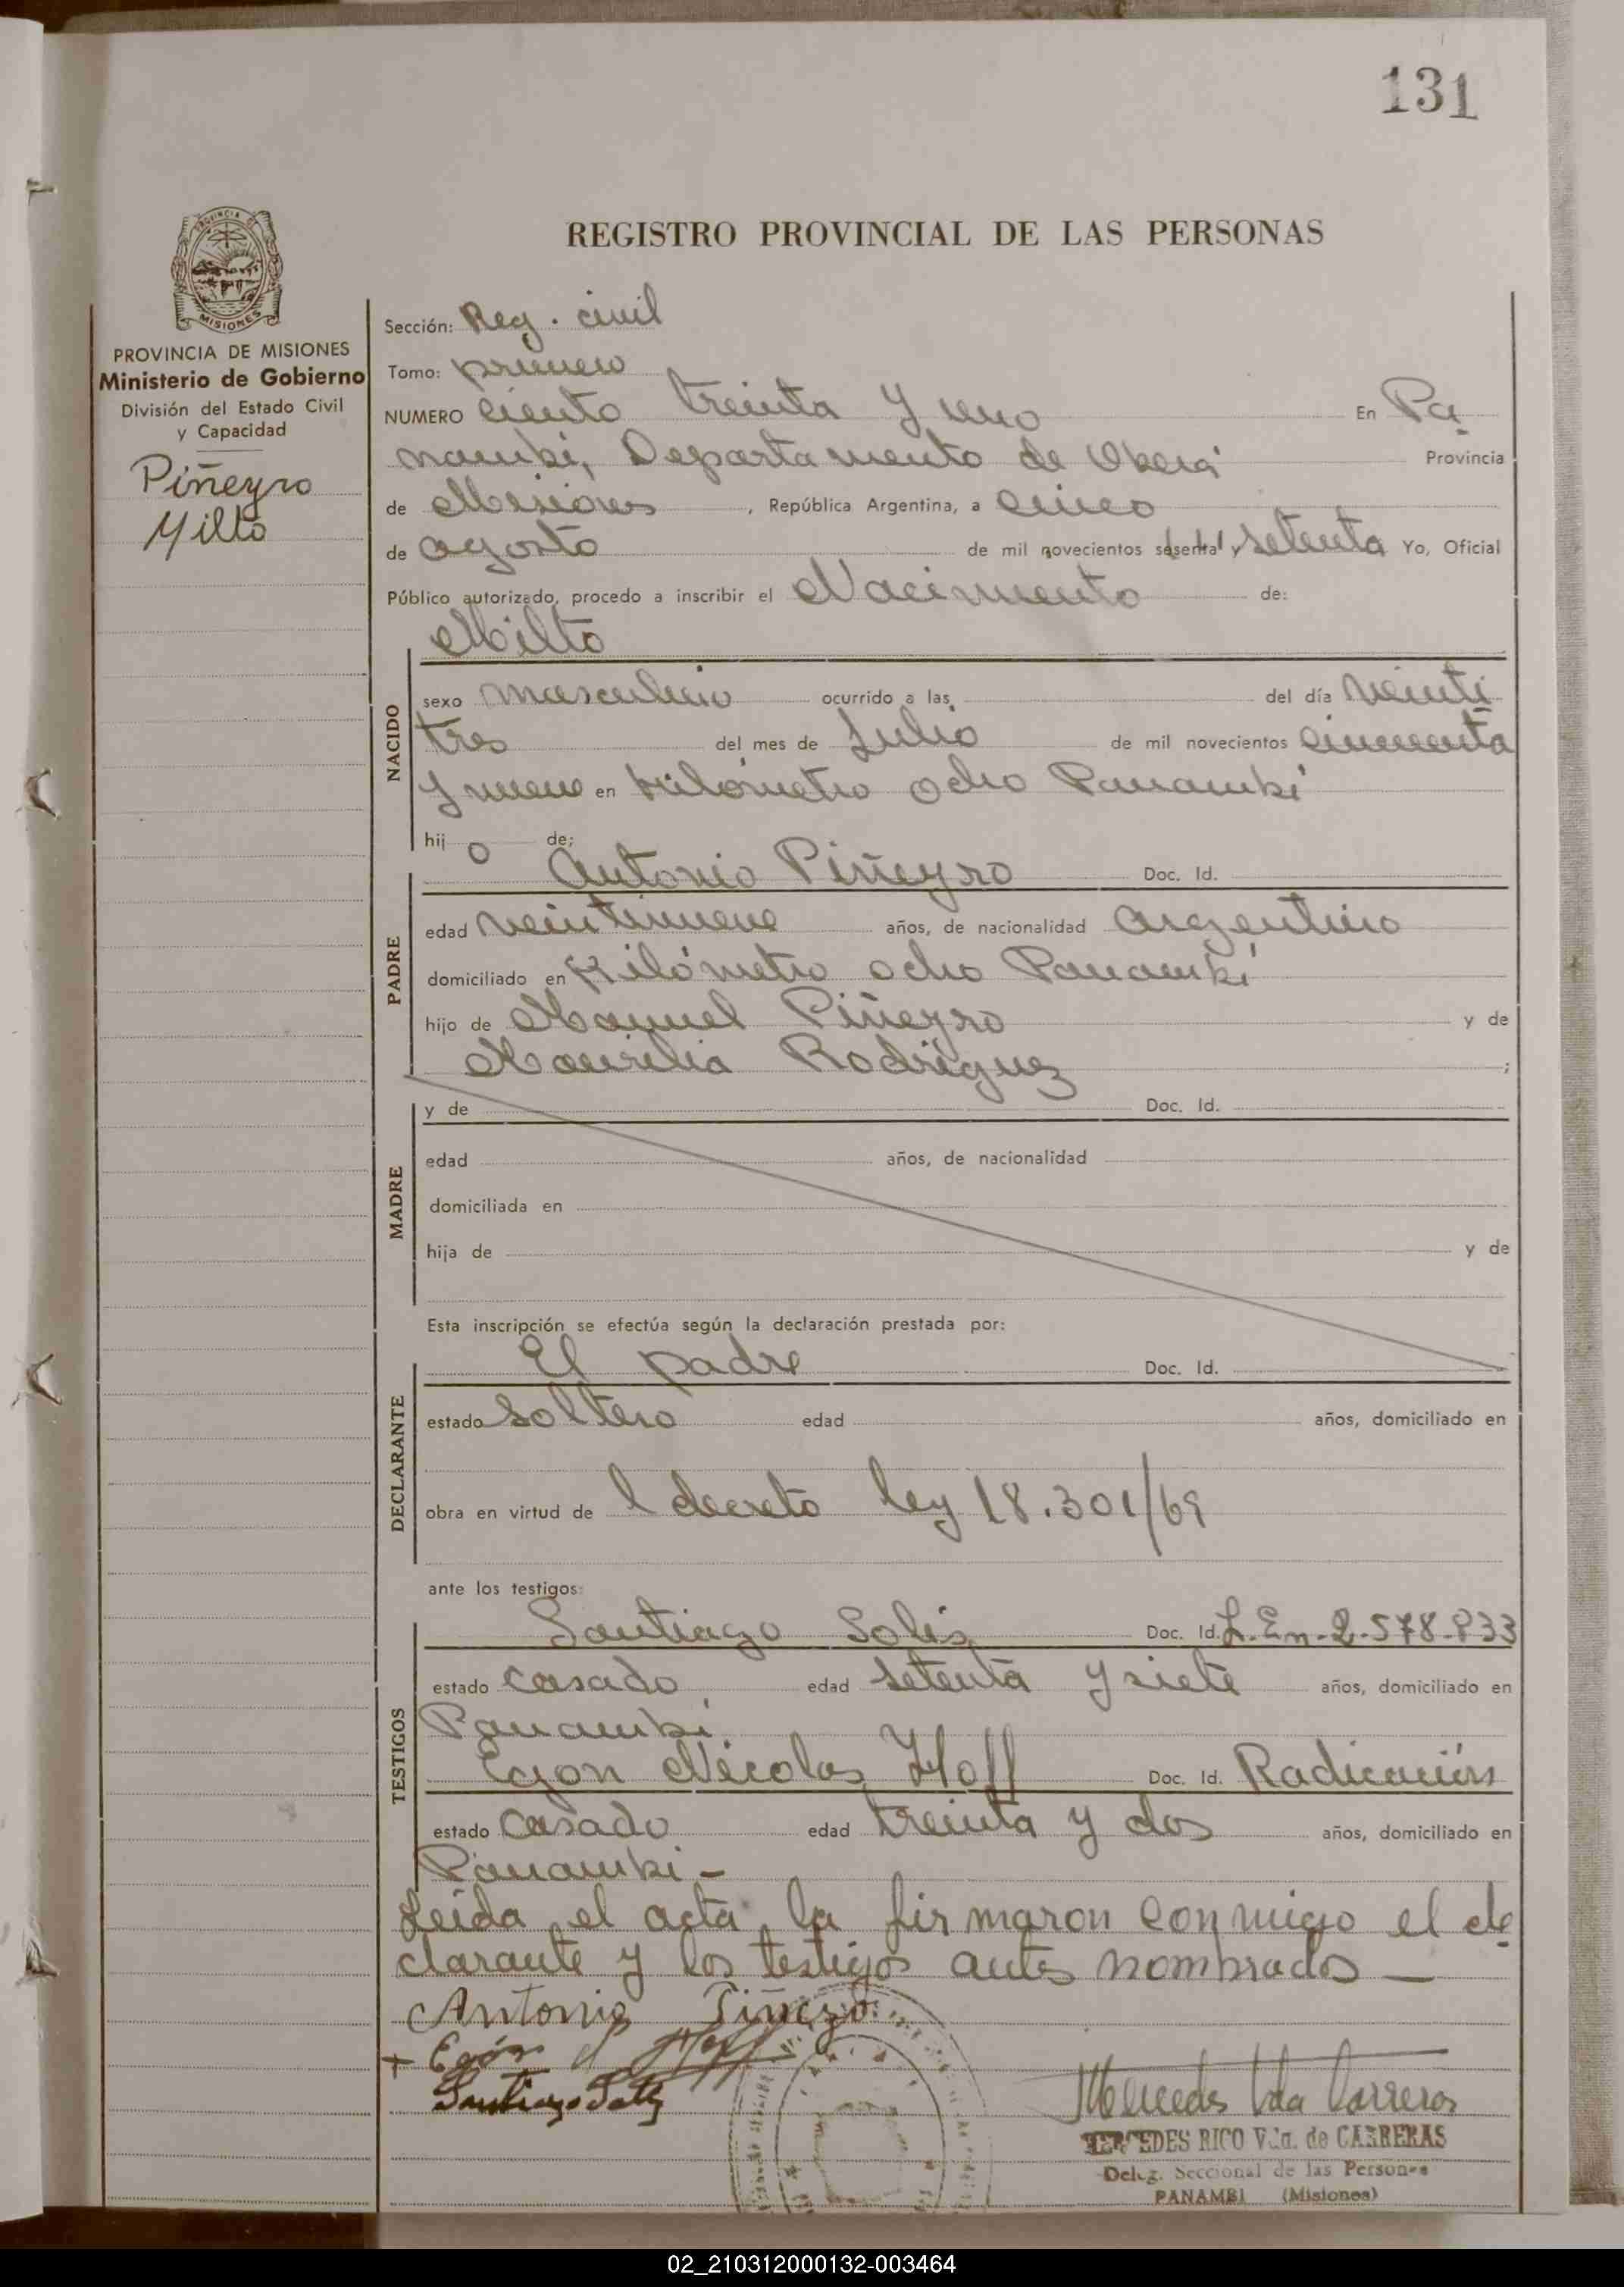 131
REGISTRO PROVINCIAL DE LAS PERSONAS
PROVINCIA DE MISIONES
Ministerio de Gobierno
División del Estado Civil
y Capacidad
Piñeyro
Milto
Sección: Reg. civil
Tomo: primero
NUMERO ciento treinta y uno En Pa
nambi, Departamento de Oberá Provincia
de Misiones, República Argentina, a cinco
de agosto de mil novecientos sesenta y setenta Yo, Oficial
Público autorizado, procedo a inscribir el Nacimiento de:
Milto
NACIDO
sexo masculino ocurrido a las del día veinti
tres del mes de Julio de mil novecientos cincuenta
y nueve en Kilómetro ocho Panambí
hij o de:
Antonio Piñeyro Doc. Id.
PADRE
edad veintinueve años, de nacionalidad argentino
domiciliado en Kilómetro ocho Panambí
hijo de Manuel Piñeyro y de
Maurilia Rodriguez ;
MADRE
y de Doc. Id.
edad años, de nacionalidad
domiciliada en
hija de y de
Esta inscripción se efectúa según la declaración prestada por:
El padre Doc. Id.
DECLARANTE
estado soltero edad años, domiciliado en
obra en virtud de l decreto ley 18.301/69
ante los testigos:
Santiago Solis Doc. Id. L. En. 2.578.833
TESTIGOS
estado casado, edad setenta y siete años, domiciliado en
Panambí
Egon Nicolas Hoff Doc. Id. Radicación
estado casado edad treinta y dos años, domiciliado en
Panambi -
Leida el acta la firmaron conmigo el de
clarante y los testigos antes nombrados —
Antonio Piñeyro
+ Egon N Hoff
Santiago Solis
Mercedes Vda Carreras
MERCEDES RICO Vda. de CARRERAS
Deleg. Seccional de las Personas
PANAMBI (Misiones)
02_210312000132-003464